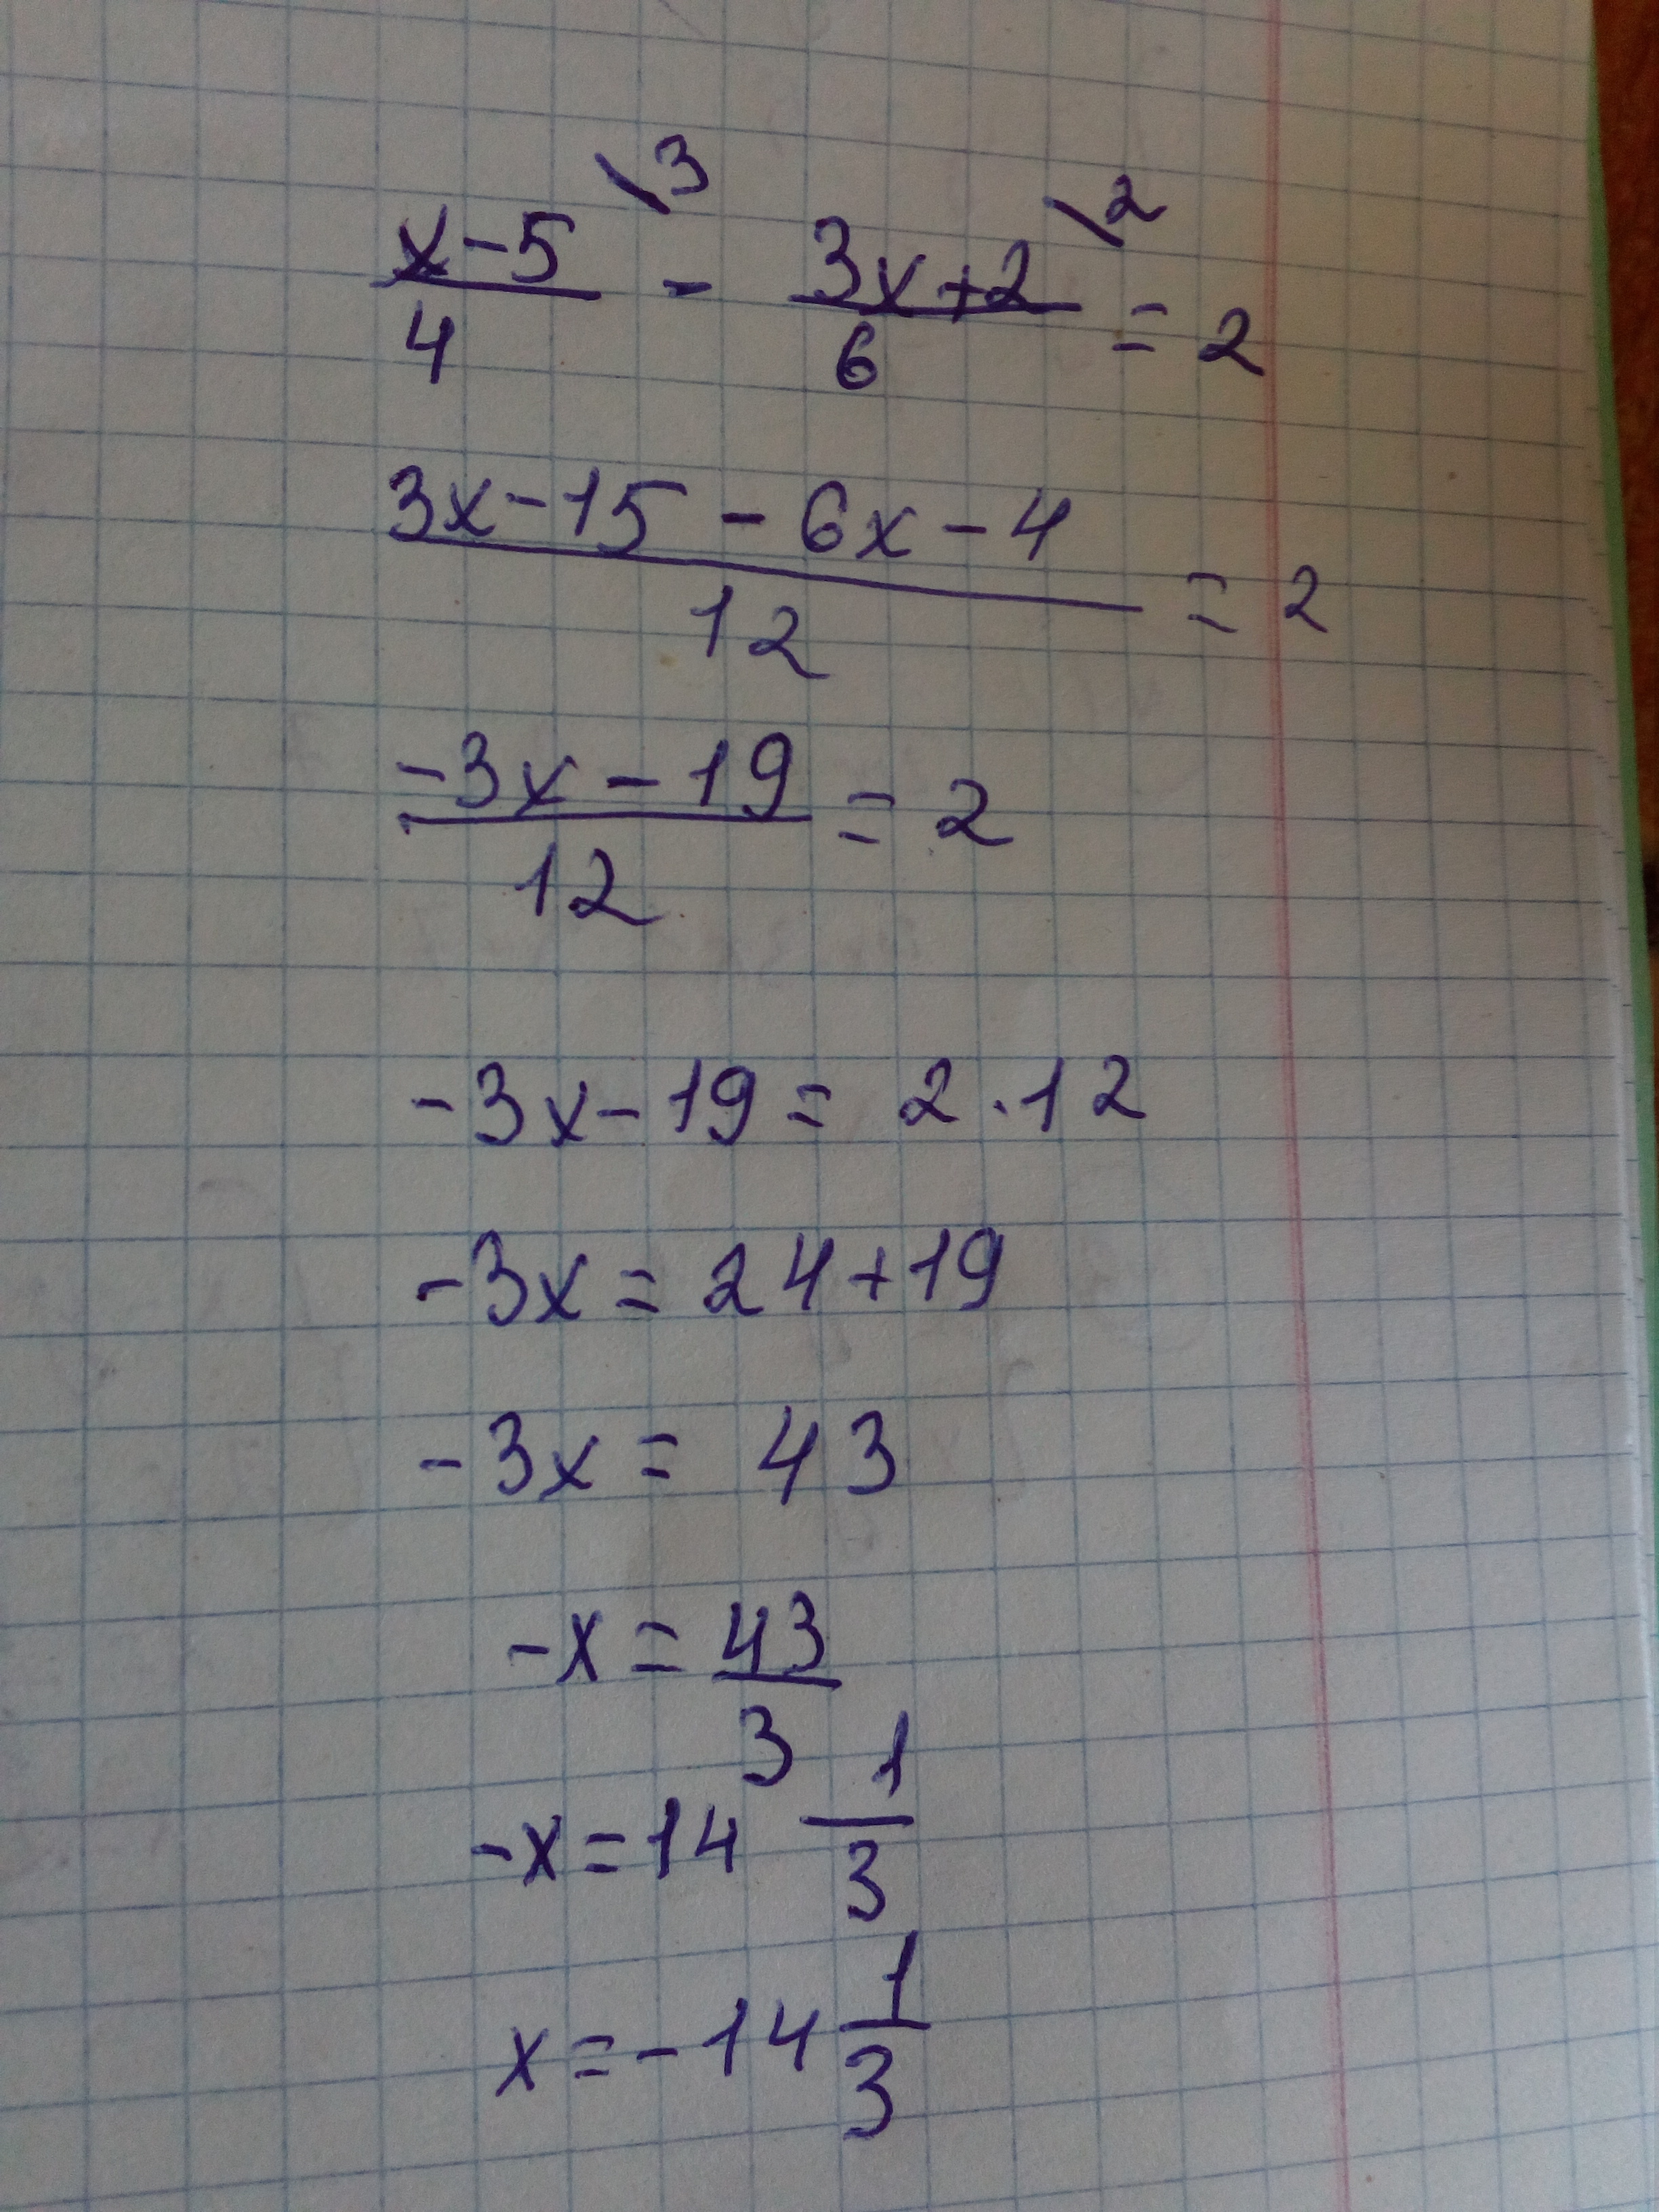 x-5/4 \3 - 3x+2/6 \2 = 2
3x-15-6x-4/12 = 2
-3x-19/12 = 2
-3x-19 = 2·12
-3x = 24+19
-3x = 43
-x = 43/3
-x = 14 1/3
x = -14 1/3